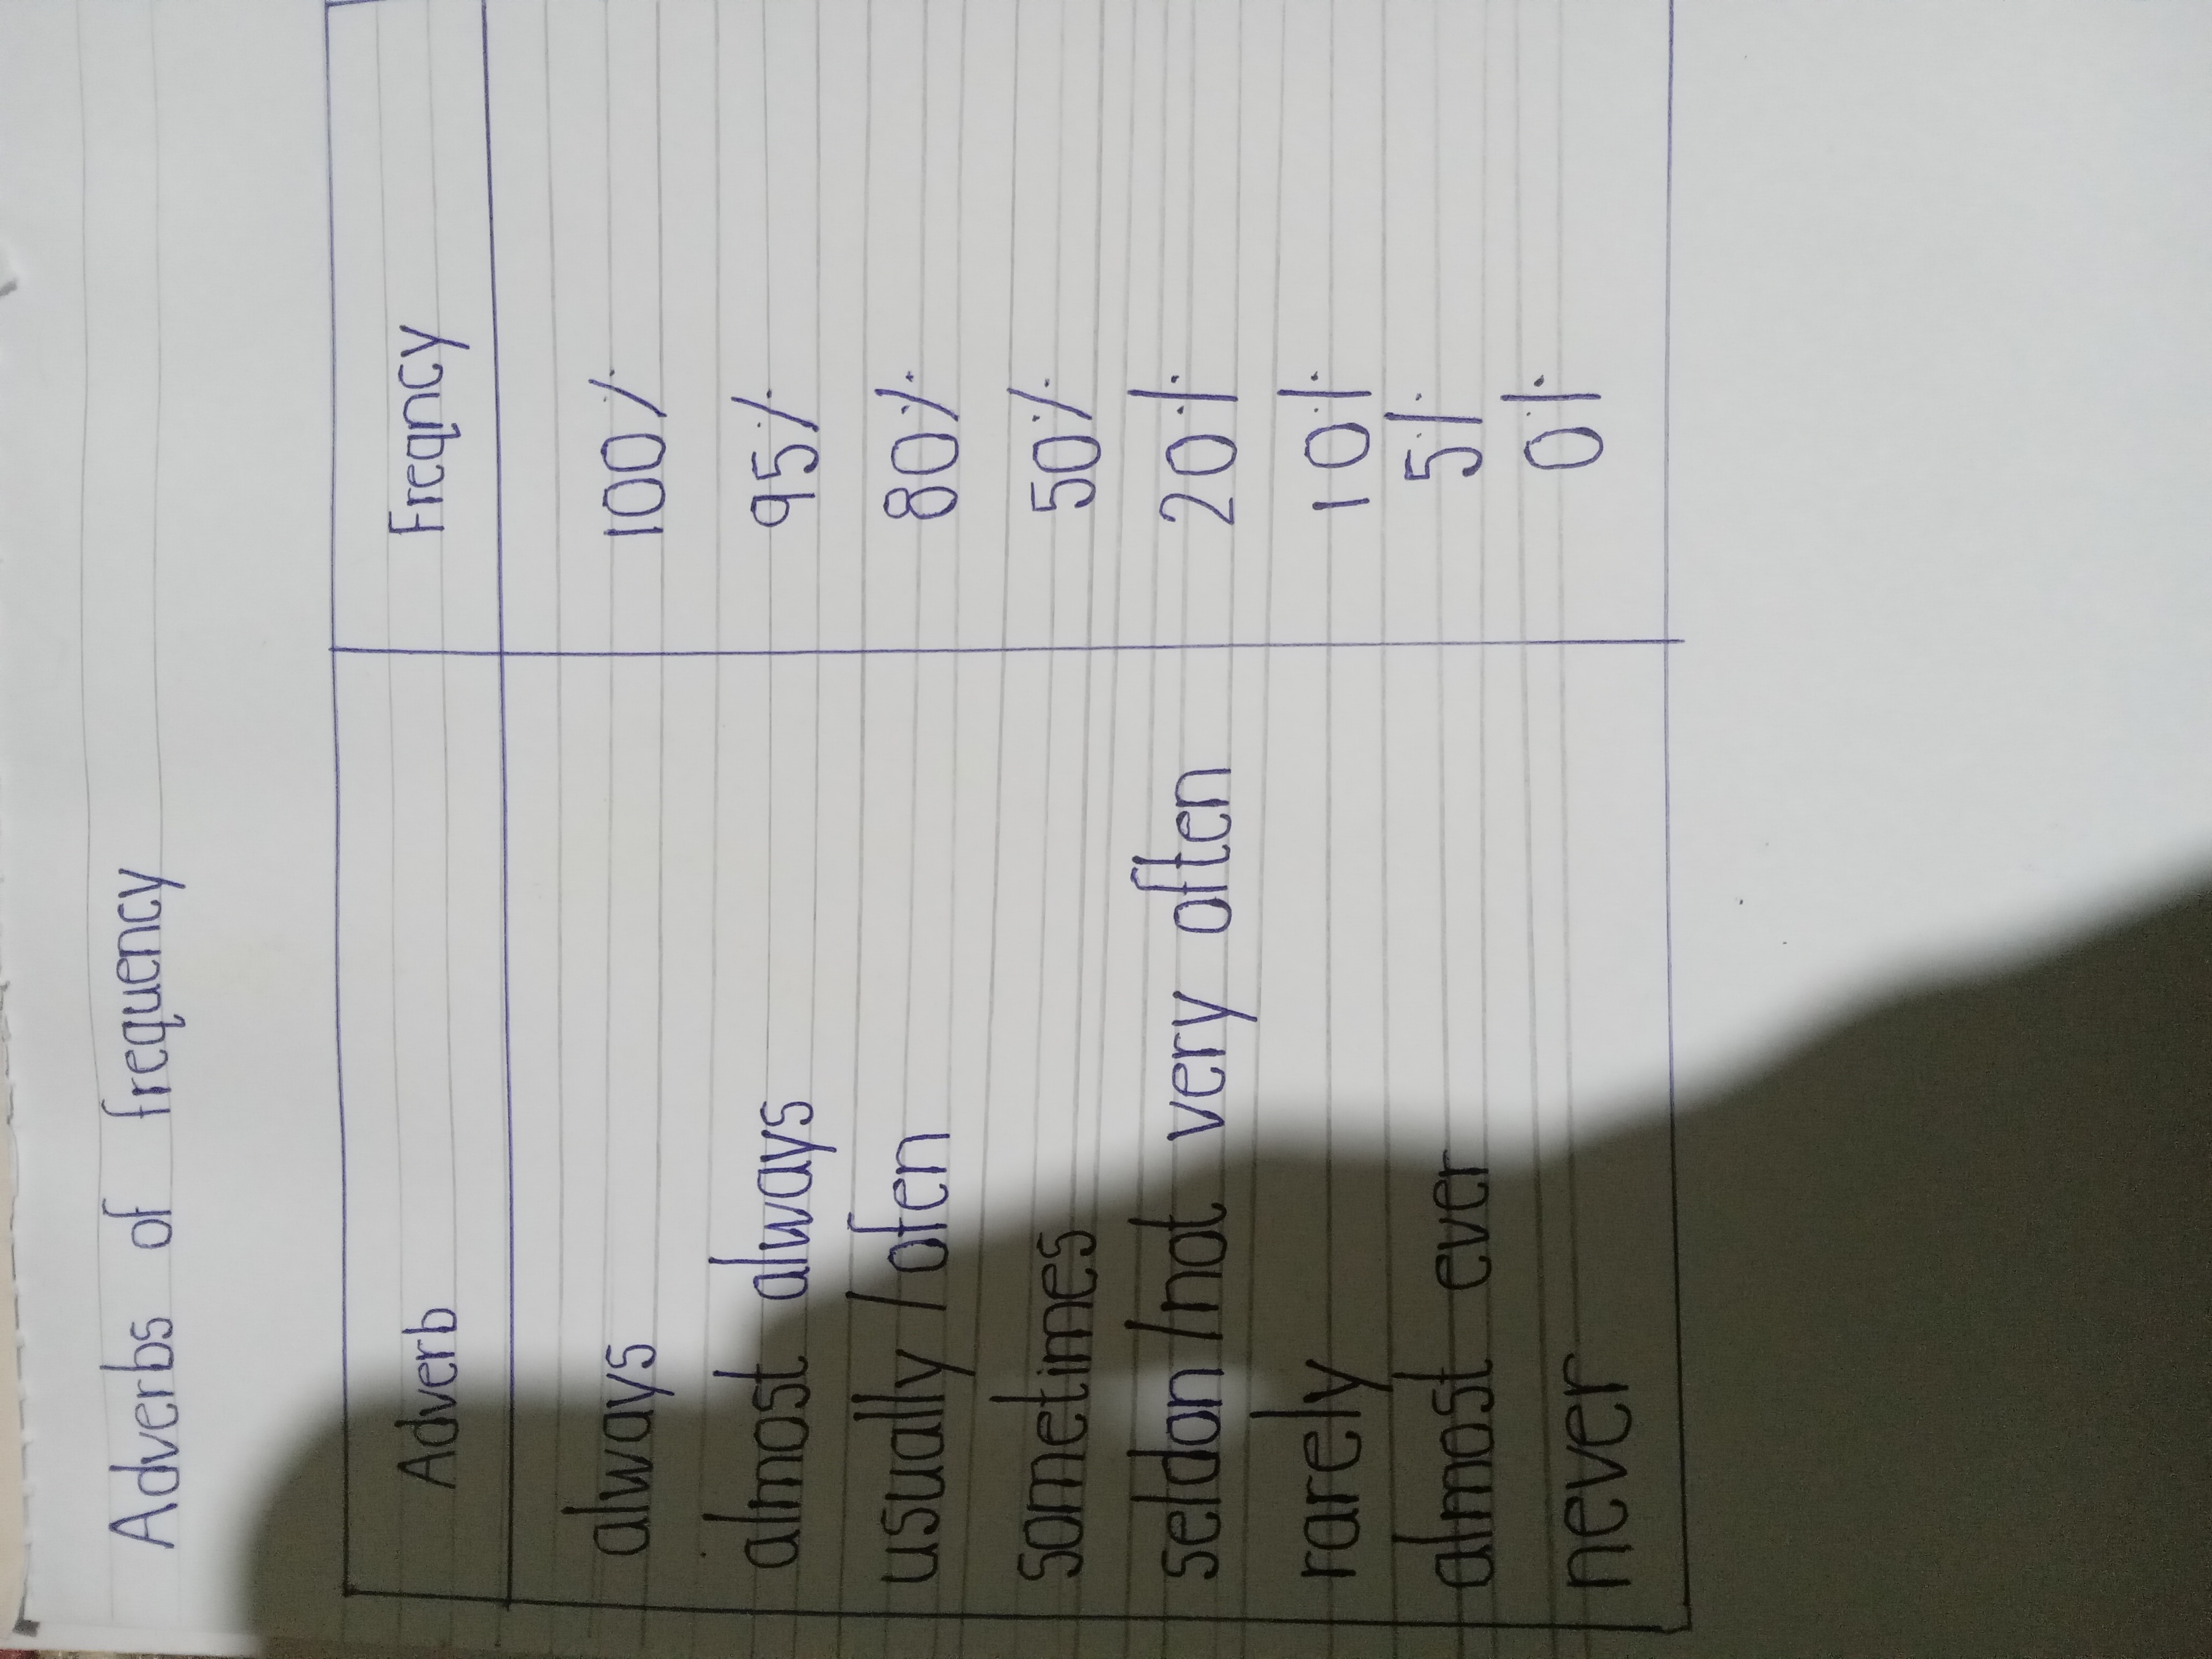 Adverbs of frequency
Adverb Freqncy
always 100%
almost always 95%
usually / ofen 80%
sometimes 50%
seldon / not very often 20%
rarely 10%
almost ever 5%
never 0%